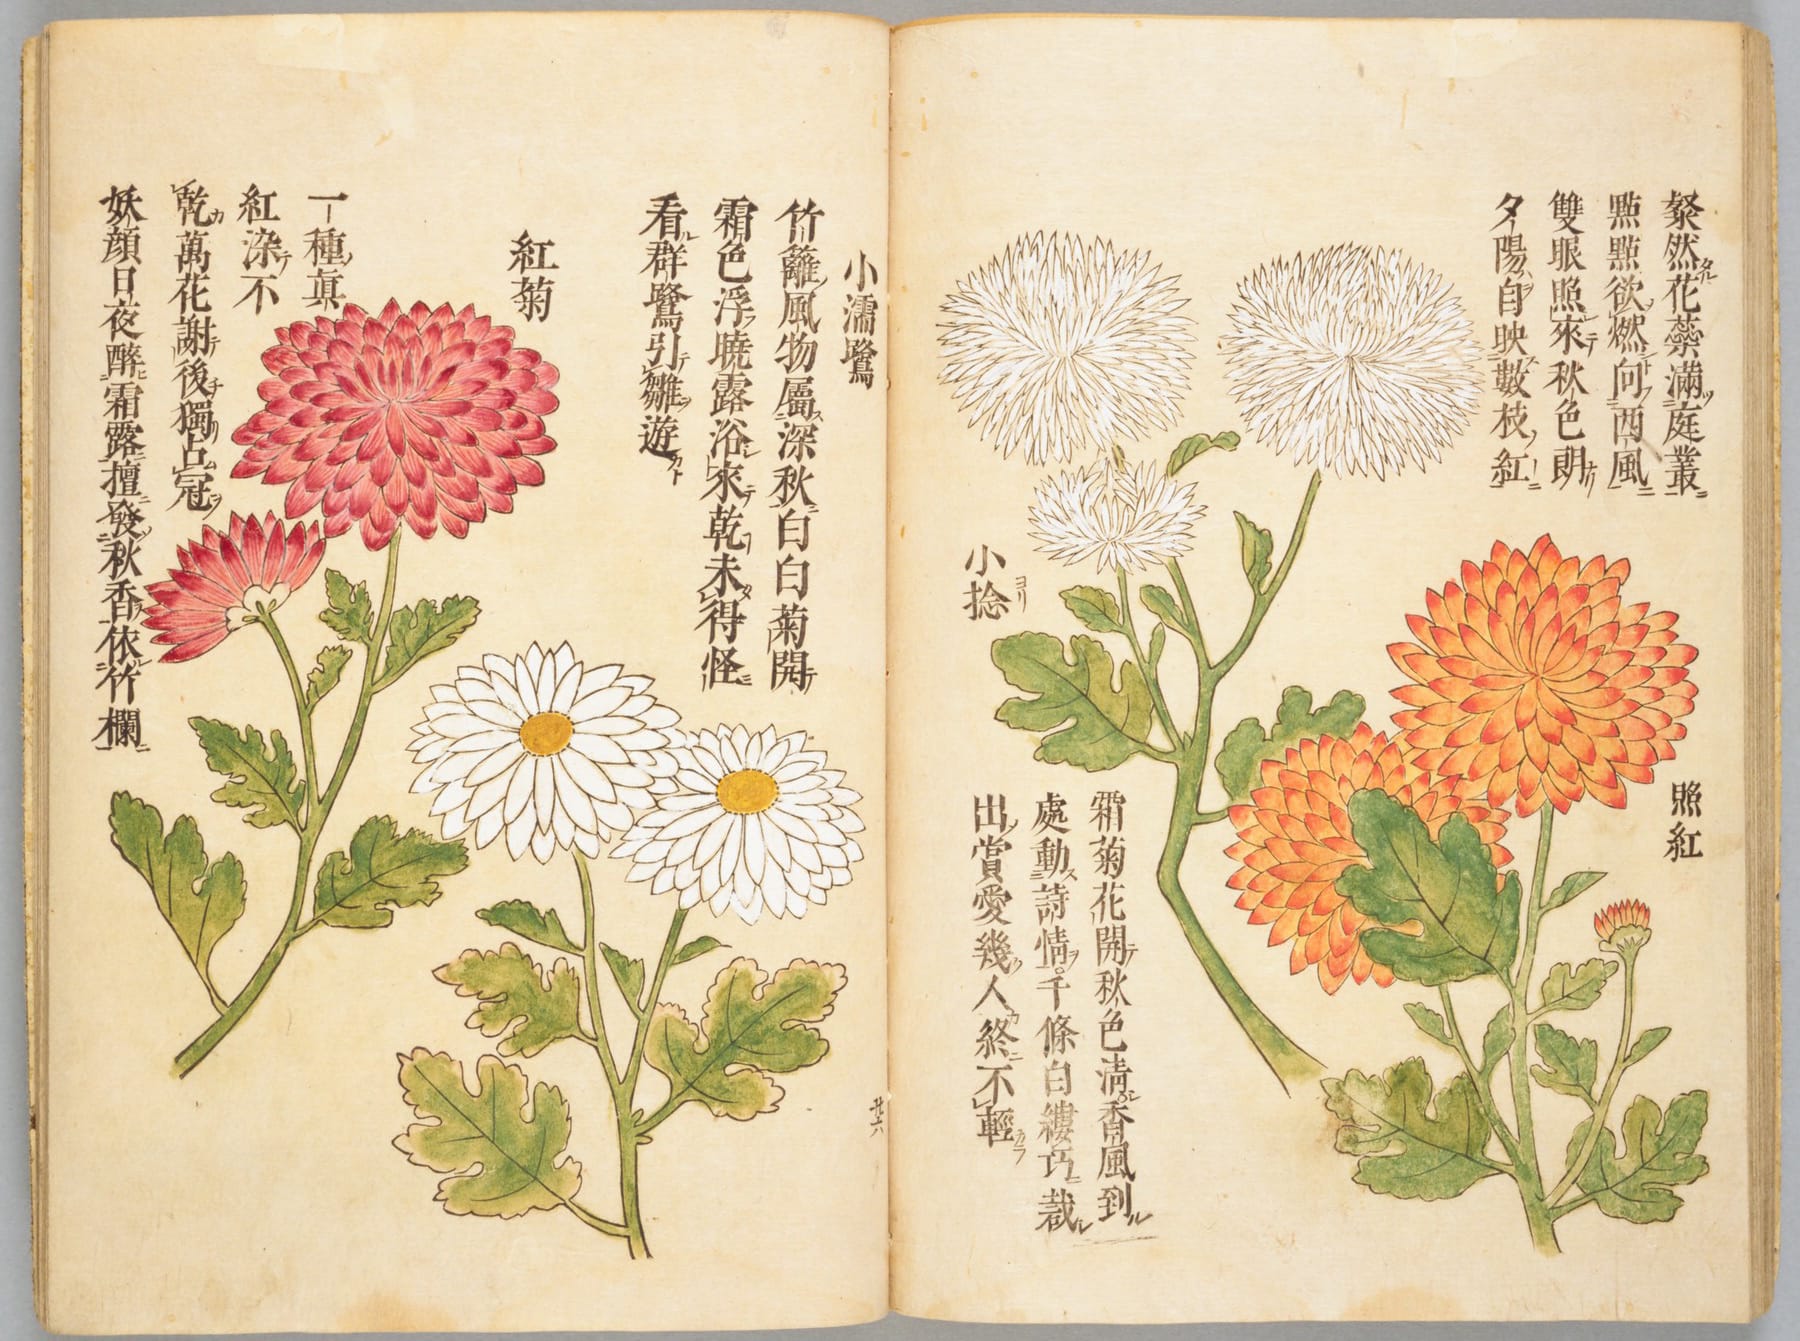 照紅
粲然花蘂滿庭叢
點點欲燃向西風
雙眼照來秋色朗
夕陽自映數枝紅
小捻
ヨリ
霜菊花開秋色淸香風到
處動詩情千條白縷巧裁
出賞愛幾人終不輕
小濡鷺
竹籬風物屬深秋白白菊開
霜色浮曉露浴來乾未得怪
看群鷺引雛遊
紅菊
一種眞
紅染不
乾萬花謝後獨占冠
妖顔日夜醉霜露擅發秋香依竹欄
廿六